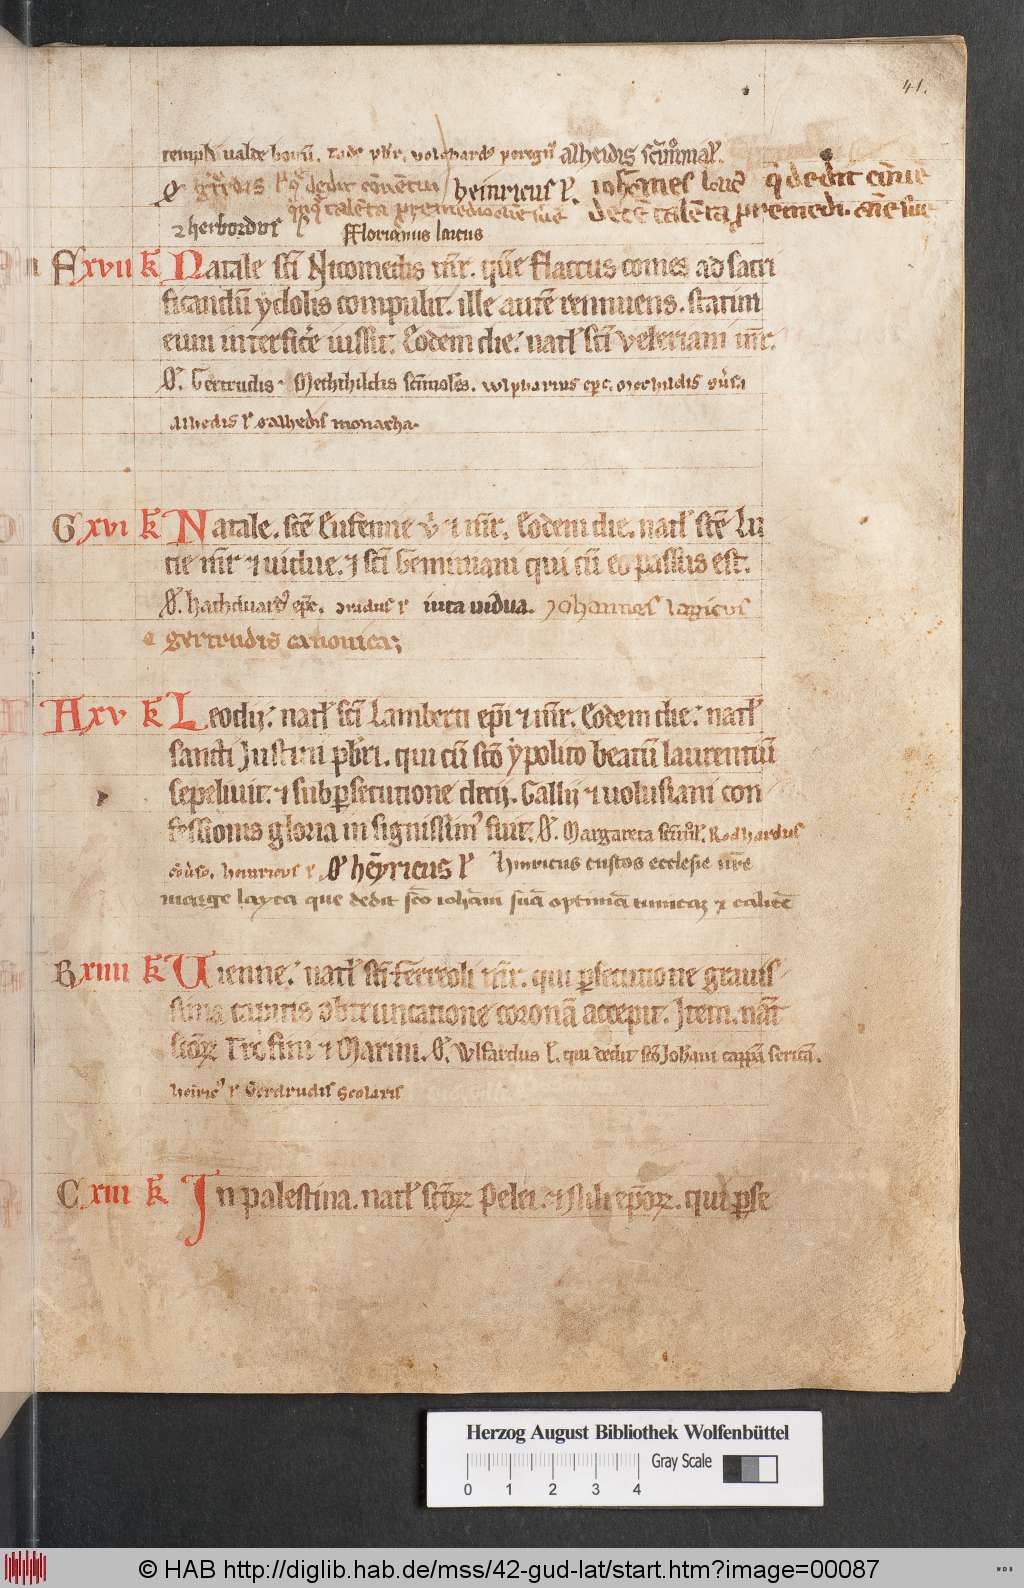 41.
templi ualde bonū. Tado pbr. volchardꝰ peregrī alheidis scīmonial.
qͥ dedit cōuentui heinricus l͛. ioh̄annes louc̄ q̄ dedit cōuē
talēta p̱ remedio aīe sue decē talēta p̱ remedi. aīe sue
⁊ herbordus l͛ Fflorianus laicus
F xvii k̄ Natale sc̄i Nicomedis m̄r. quē flaccus comes ad sacri
ficandū ydolis compulit. ille autē rennuens. statim
eum interficē iussit. Eodem die. natl̛ sc̄i Valeriani m̄r.
O͛. Gertrudis. Methhildis scīmoles. Wlphardus epc. Methildis
Alhedis l͛ Alhedis monacha.
G xvi k̄ Natale. sc̄e Eufemie v̄ ⁊ m̄r. Eodem die. natl̛ sc̄e Lu
cie m̄r ⁊ uidue. ⁊ sc̄i Geminiani qui cū eo passus est.
O͛. Hathduardꝰ epc. l͛ iuta uidua. Johannes lagicus
gertrudis canonica;
A xv k̄ Leodij. natl̛ sc̄i Lamberti ep̄i ⁊ m̄r. Eodem die. natl̛
sancti Justini pbr̄i. qui cū sc̄o ypolito beatū laurentiū
sepeliuit. ⁊ sub p̱secutione decij. Gallij ⁊ uolusiani con
fessionis gloria in signissimꝰ fuit. O͛. Margareta scīml̛. Rodhardus
cōūso. heinricus l͛. O͛ hēyricus l͛ hinricus custos ecclesie nr̄e
marge layca que dedit sc̄o ioh̄ani suā optimā tunicā ⁊ calicē
B xiiii k̄ Uienne. natl̛ sc̄i Ferreoli m̄r. qui p̱secutione grauis
sima capitis obtruncatione coronā accepit. Item. nat̄
sc̄oꝝ Trofimi ⁊ Marini. O͛. Wlfardus l͛. qui dedit sc̄o Joh̄ani cappā sericā.
heīricꝰ l͛ Gerdrudis scolaris
C xiii k̄ In palestina. natl̛ sc̄oꝝ Pelei. ⁊ Nili ep̄oꝝ. qui p̱se
Herzog August Bibliothek Wolfenbüttel
Gray Scale
0 1 2 3 4
© HAB http://diglib.hab.de/mss/42-gud-lat/start.htm?image=00087